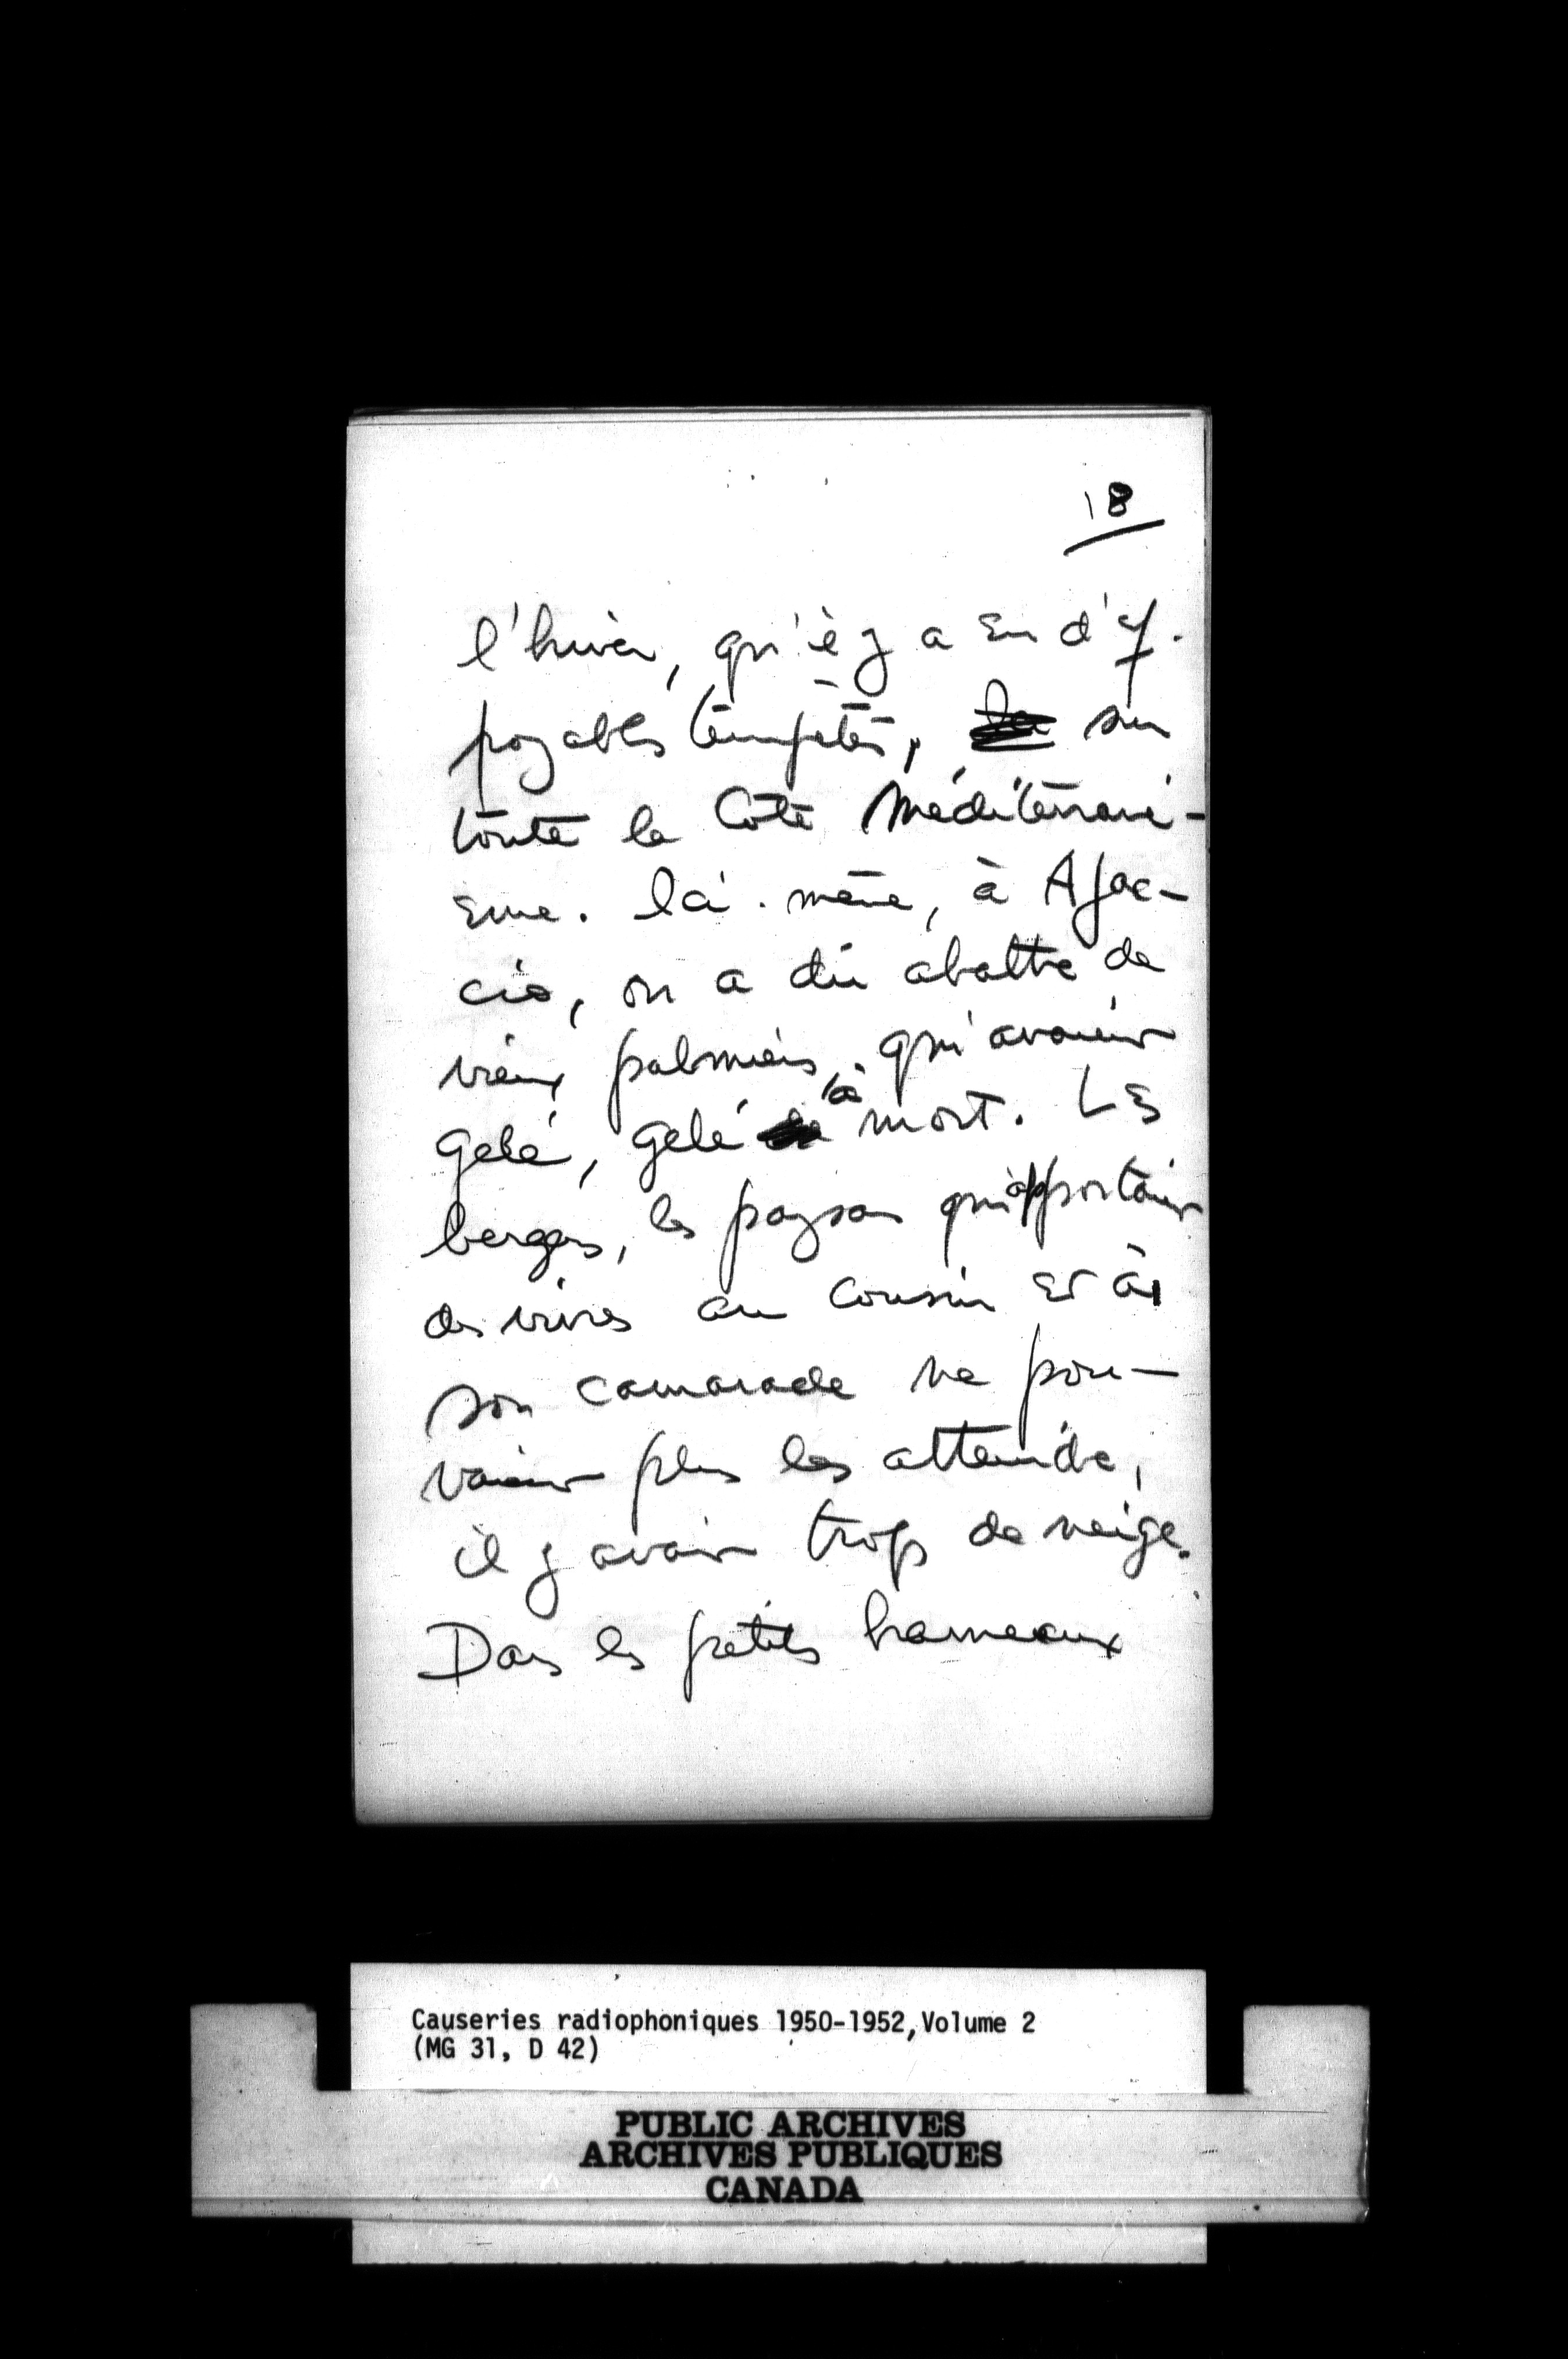 18
l'hiver, qu'il y a eu d'ef-
froyables tempêtes, sur
toute la Côte Méditerrané-
enne. Ici-même, à Ajac-
cio, on a dû abattre de
vieux palmiers, qui avaient
gelé, gelé à mort. Les
bergers, les paysans qui apportaient
des vivres au cousin et à
son camarade ne pou-
vaient plus les atteindre,
il y avait trop de neige.
Dans les petits hameaux
Causeries radiophoniques 1950-1952, Volume 2
(MG 31, D 42)
PUBLIC ARCHIVES
ARCHIVES PUBLIQUES
CANADA